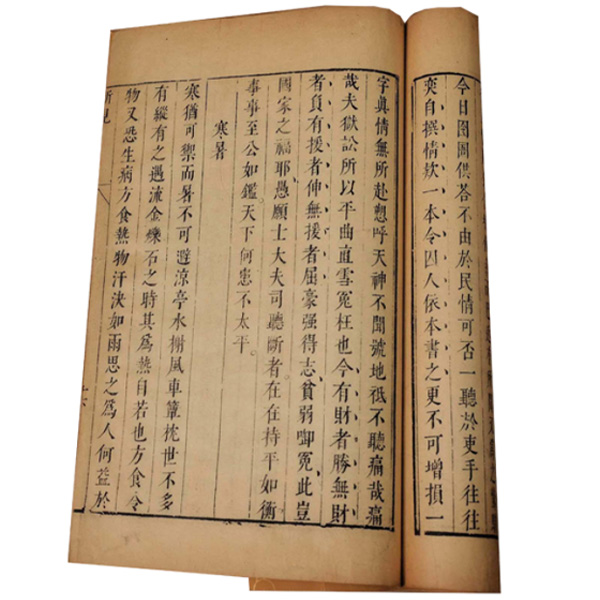 今日囹圄供荅不由於民情可否一聽於吏手往往
自撰情欵一本令囚人依本書之更不可增損一
字眞情無所赴愬呼天神不聞號地祇不聽痛哉痛
哉夫獄訟所以平曲直雪冤枉也今有財者勝無財
者負有援者伸無援者屈豪强得志貧弱啣冤此豈
國家之福耶愚願士大夫司聽斷者在在持平如衡
事事至公如鑑天下何患不太平
寒暑
寒猶可禦而暑不可避涼亭水榭風車簟枕世不多
有縱有之遇流金爍石之時其爲熱自若也方食冷
物又恐生病方食熱物汗決如雨思之爲人何益於
所見